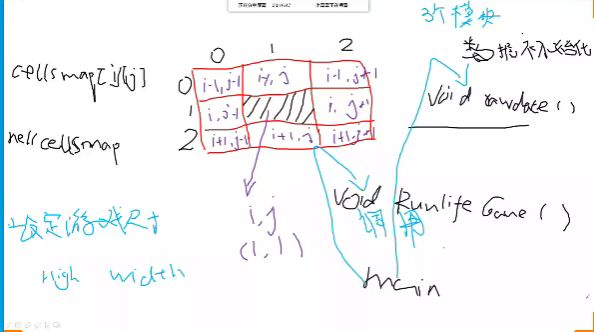 3个模块
0 1 2
cellsmap[i][j]
0 i-1,j-1 i-1,j i-1,j+1
数据初始化
void rawdate()
1 i,j-1 i,j+1
2 i+1,j-1 i+1,j i+1,j+1
newcellsmap
void RunlifeGame()
调用
i,j
(1,1)
设定游戏尺寸
High width
main